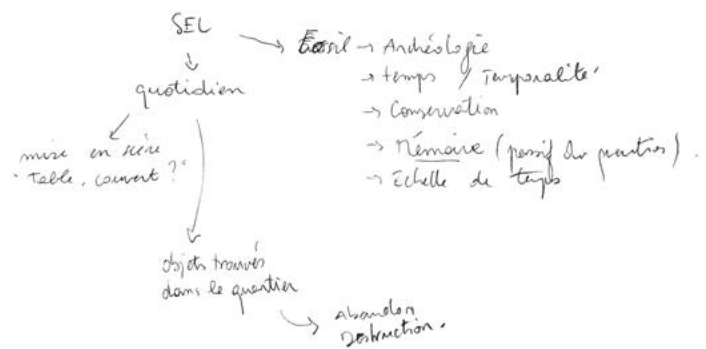 SEL
→ Fossil → Archéologie
→ temps / Temporalité
→ Conservation
→ Mémoire (passif du quartier).
→ Echelle de temps
quotidien
mise en scène
"Table, couvert ?"
objets trouvés
dans le quartier
→ Abandon
Destruction.